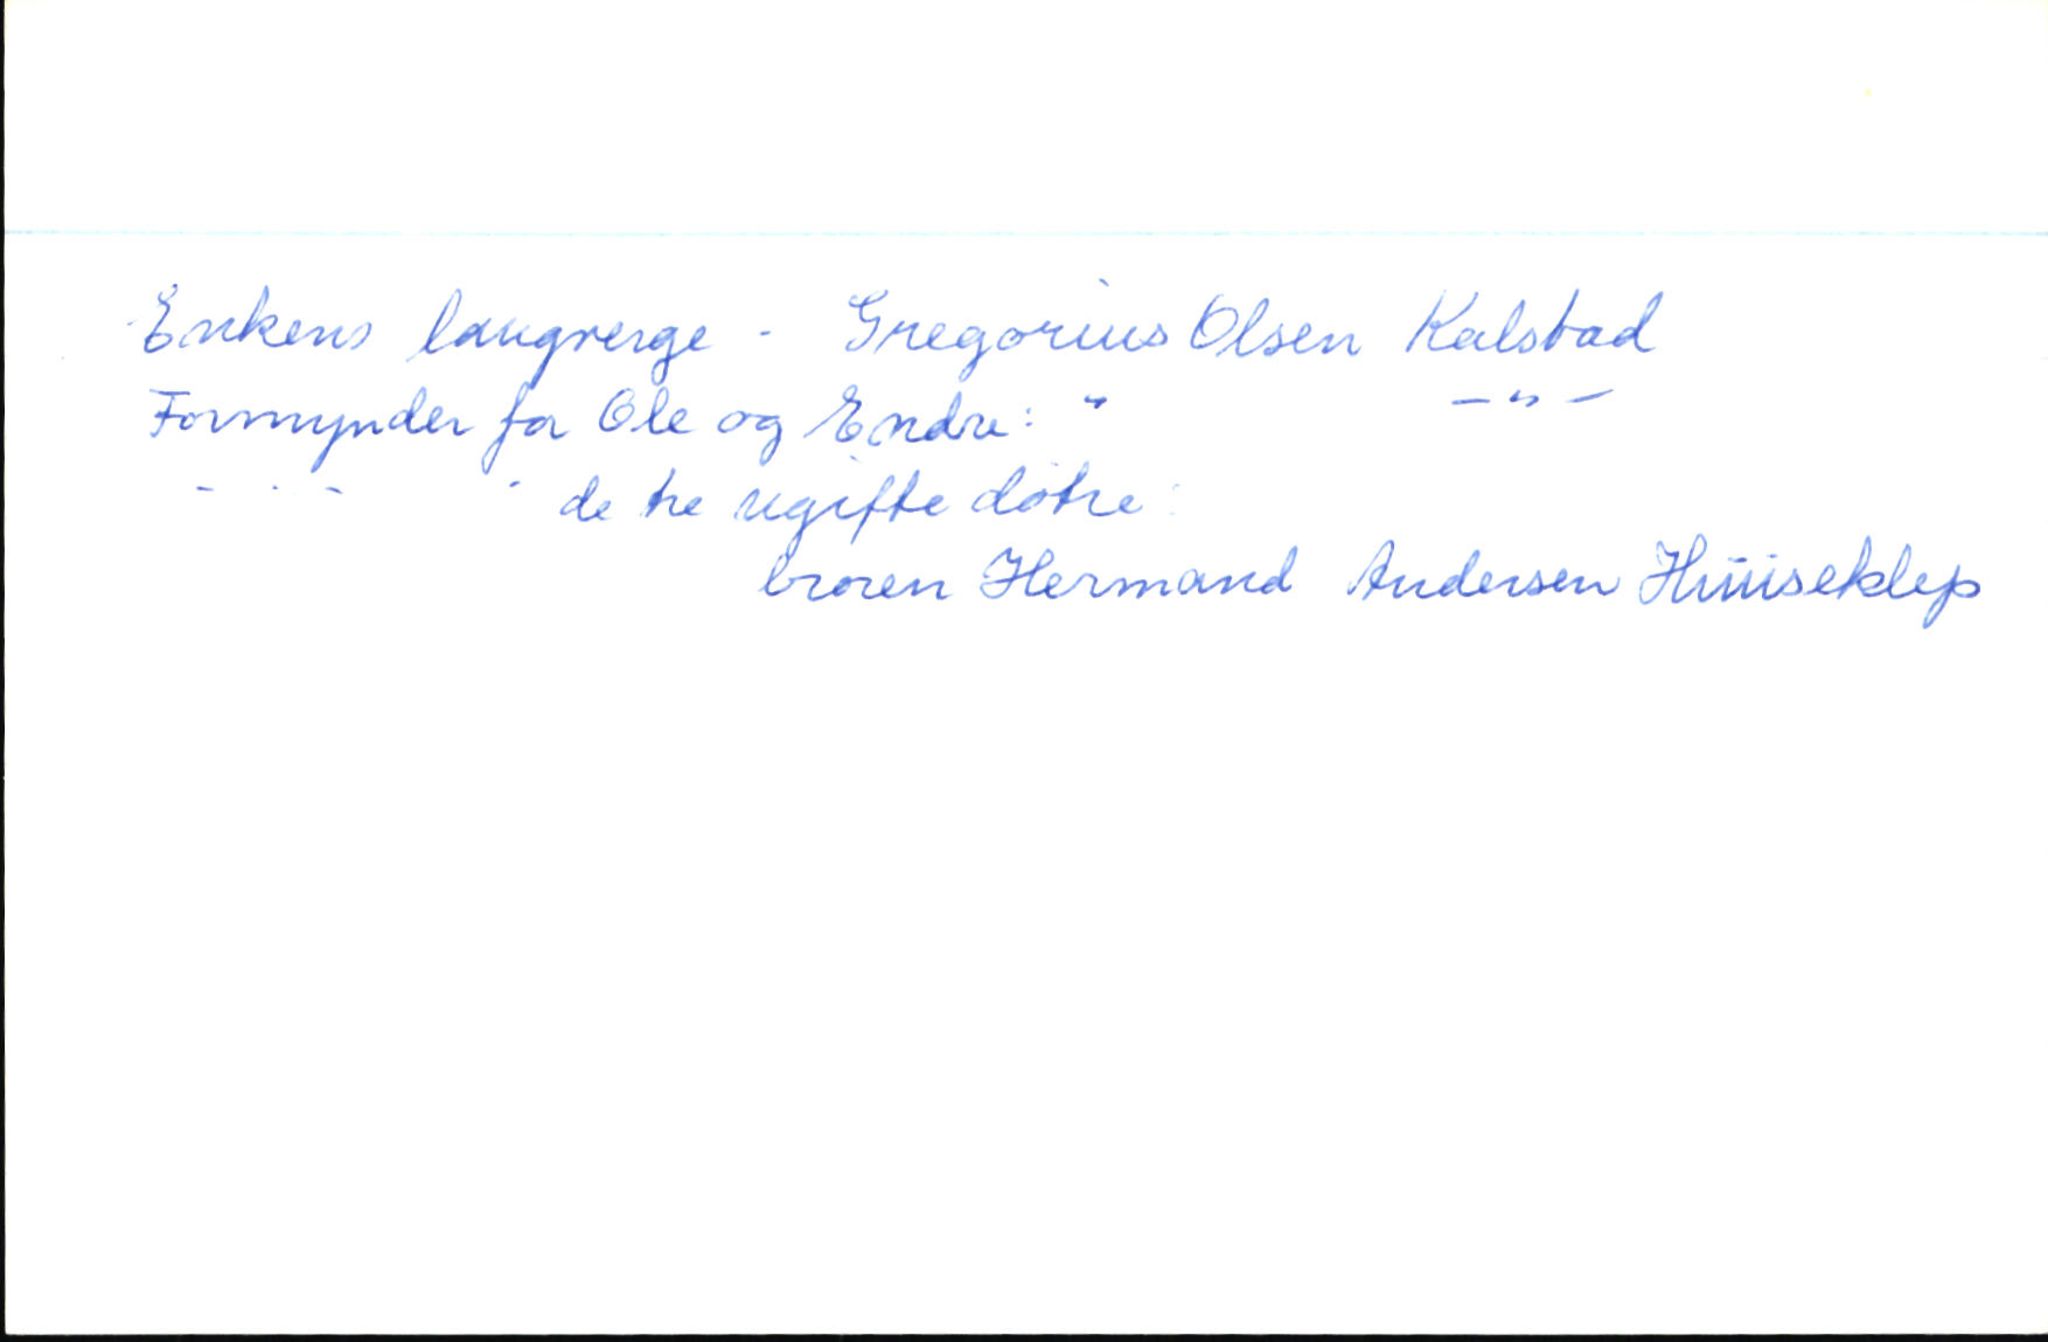 Enkens laugverge - Gregorius Olsen Kalstad
Formynder for Ole og Endre: " - " -
- " - " de tre ugifte døtre:
broren Hermand Andersen Huuseklep